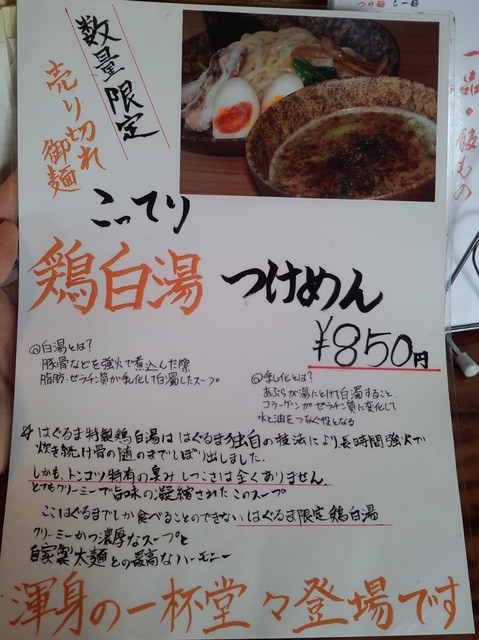 つけ麺
一品・飯もの
数量限定
売り切れ
御麺
こってり
鶏白湯 つけめん
¥850円
◎白湯とは?
豚骨などを強火で煮込んだ際
脂肪・ゼラチン質が乳化して白濁したスープ
◎乳化とは?
あぶらが湯にとけて白濁すること、
コラーゲンがゼラチン質に変化して
水と油をつなぐ役となる
はぐるま特製鶏白湯は はぐるま独自の技法により長時間強火で
炊き続け骨の随のまでしぼり出しました。
しかも、トンコツ特有の臭み しつこさは全くありません
とてもクリーミーで旨味の凝縮されたこのスープ
ここはぐるまでしか食べることのできない はぐるま限定鶏白湯
クリーミーかつ濃厚なスープと
自家製太麺との最高なハーモニー
渾身の一杯堂々登場です